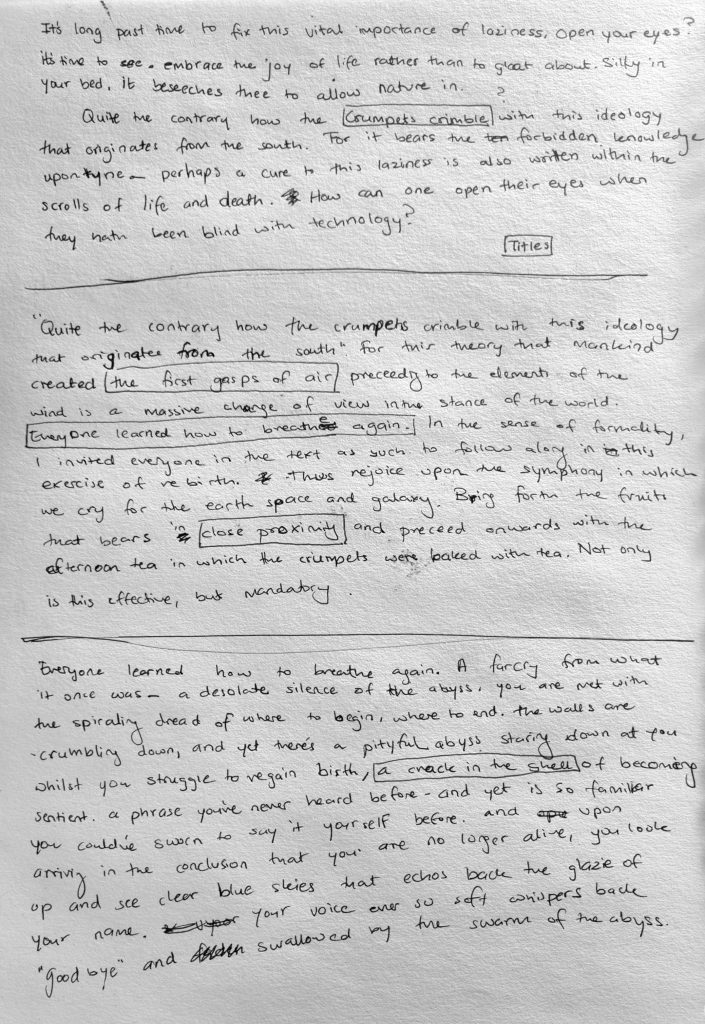 It's long past time to fix this vital importance of laziness, open your eyes?
it's time to see. embrace the joy of life rather than to gloat about. Silky in
your bed, it beseeches thee to allow nature in.
Quite the contrary how the Crumpets crimble with this ideology
that originates from the south. For it bears the forbidden knowledge
upon tyne - perhaps a cure to this laziness is also written within the
scrolls of life and death. How can one open their eyes when
they hath been blind with technology?
Titles
"Quite the contrary how the crumpets crimble with this ideology
that originates from the south" for this theory that mankind
created the first gasps of air preceedig to the element of the
wind is a massive change of view in the stance of the world.
Everyone learned how to breathe again. In the sense of formality,
I invited everyone in the text as such to follow along in this
exercise of rebirth. Thus rejoice upon the symphony in which
we cry for the earth space and galaxy. Bring forth the fruits
that bears in close proximity and preceed onwards with the
afternoon tea in which the crumpets were baked with tea. Not only
is this effective, but mandatory.
Everyone learned how to breathe again. A farcry from what
it once was - a desolate silence of the abyss, you are met with
the spiraling dread of where to begin, where to end. the walls are
crumbling down, and yet there's a pityful abyss staring down at you
whilst you struggle to regain birth, a crack in the shell of becoming
sentient. a phrase you've never heard before - and yet is so familiar
you could've sworn to say it yourself before. and upon
arriving in the conclusion that you are no longer alive, you look
up and see clear blue skies that echos back the glazie of
your name. your voice ever so soft whispers back
"good bye" and swallowed by the swarm of the abyss.